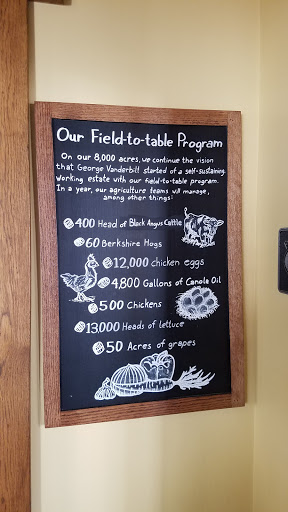 Our Field-to-table Program
On our 8,000 acres, we continue the vision
that George Vanderbilt started of a self-sustaining
working estate with our field-to-table program.
In a year, our agriculture teams will manage,
among other things:
400 Head of Black Angus Cattle
60 Berkshire Hogs
12,000 chicken eggs
4,800 Gallons of Canola Oil
500 Chickens
13,000 Heads of lettuce
50 Acres of grapes